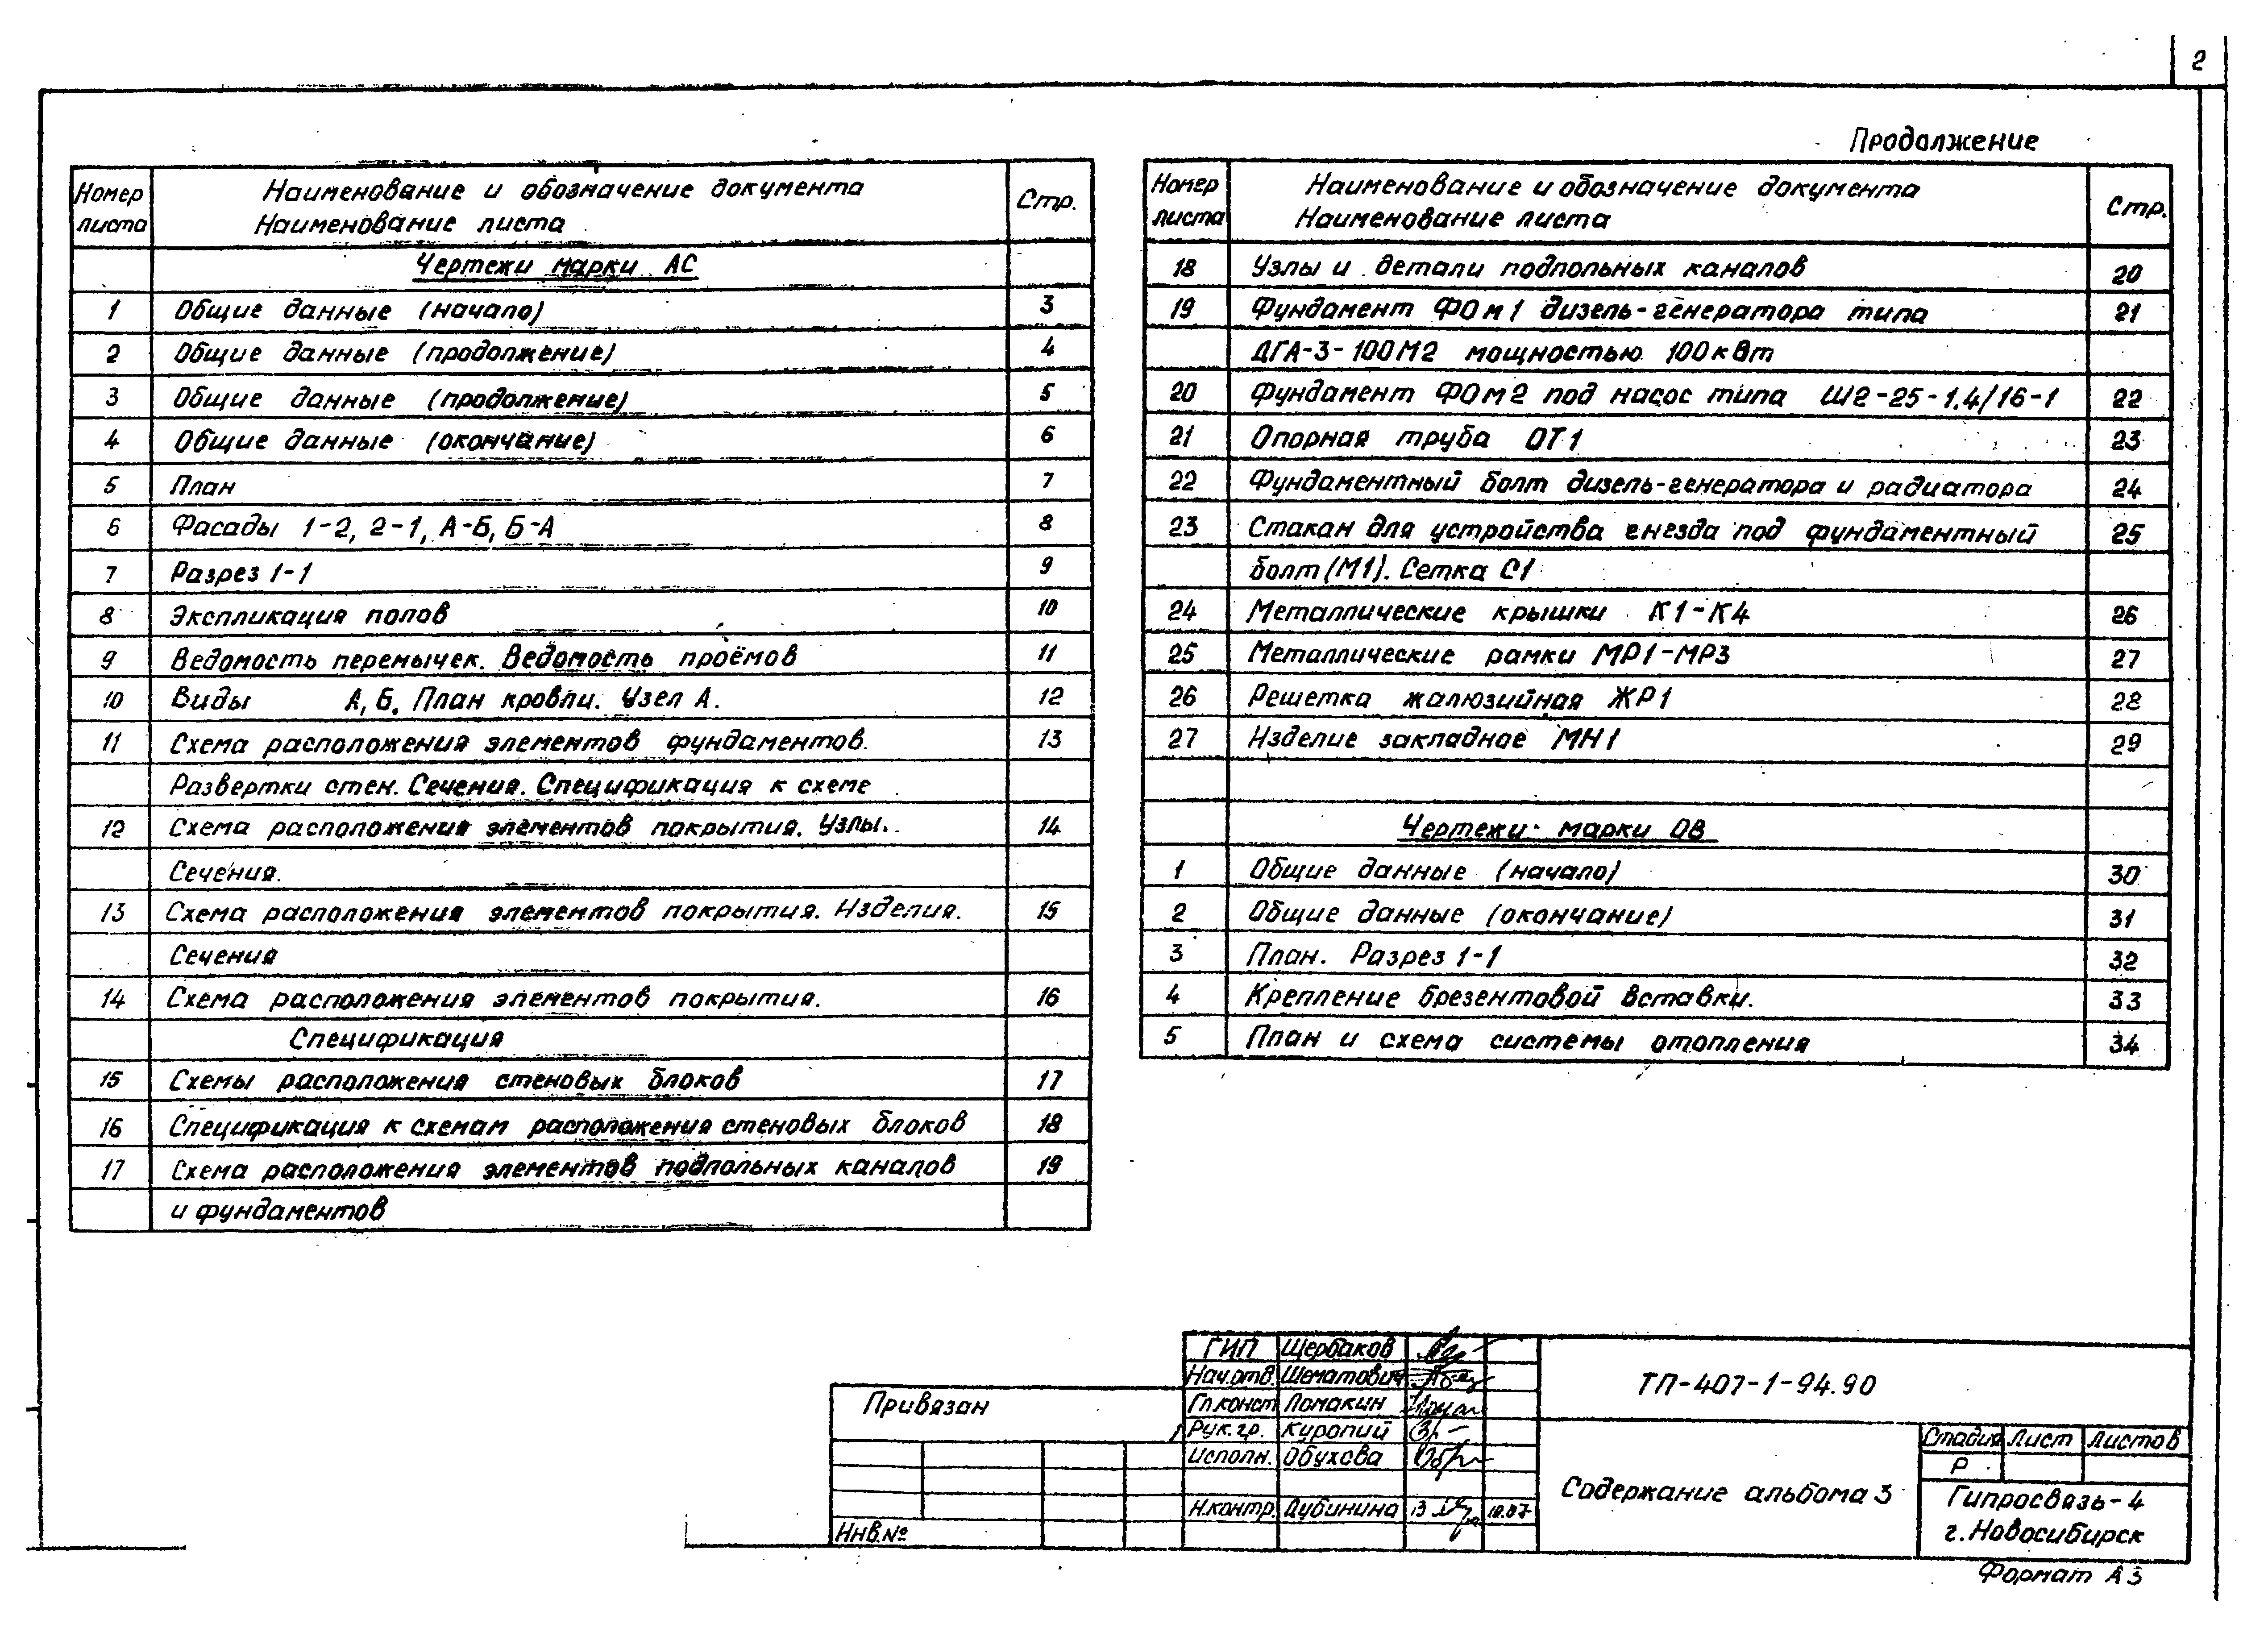 2
Продолжение
Номер листа | Наименование и обозначение документа Наименование листа | Стр.
Чертежи марки АС
1 Общие данные (начало) 3
2 Общие данные (продолжение) 4
3 Общие данные (продолжение) 5
4 Общие данные (окончание) 6
5 План 7
6 Фасады 1-2, 2-1, А-Б, Б-А 8
7 Разрез 1-1 9
8 Экспликация полов 10
9 Ведомость перемычек. Ведомость проёмов 11
10 Виды А, Б. План кровли. Узел А. 12
11 Схема расположения элементов фундаментов. 13
Развертки стен. Сечения. Спецификация к схеме
12 Схема расположения элементов покрытия. Узлы. 14
Сечения.
13 Схема расположения элементов покрытия. Изделия. 15
Сечения
14 Схема расположения элементов покрытия. 16
Спецификация
15 Схемы расположения стеновых блоков 17
16 Спецификация к схемам расположения стеновых блоков 18
17 Схема расположения элементов подпольных каналов 19
и фундаментов
Номер листа | Наименование и обозначение документа Наименование листа | Стр.
18 Узлы и детали подпольных каналов 20
19 Фундамент ФОм1 дизель-генератора типа 21
ДГА-3-100М2 мощностью 100кВт
20 Фундамент ФОм2 под насос типа Ш2-25-1.4/16-1 22
21 Опорная труба ОТ1 23
22 Фундаментный болт дизель-генератора и радиатора 24
23 Стакан для устройства гнезда под фундаментный 25
болт (М1). Сетка С1
24 Металлические крышки К1-К4 26
25 Металлические рамки МР1-МР3 27
26 Решетка жалюзийная ЖР1 28
27 Изделие закладное МН1 29
Чертежи марки ОВ
1 Общие данные (начало) 30
2 Общие данные (окончание) 31
3 План. Разрез 1-1 32
4 Крепление брезентовой вставки. 33
5 План и схема системы отопления 34
Привязан
Инв.№
ГИП Щербаков
Нач.отд. Шематович
Гл.конст Ломакин
Рук.гр. Куропий
Исполн. Обухова
Н.контр. Дубинина
ТП-407-1-94.90
Содержание альбома 3
Стадия Лист Листов
Р
Гипросвязь-4
г.Новосибирск
Формат А3